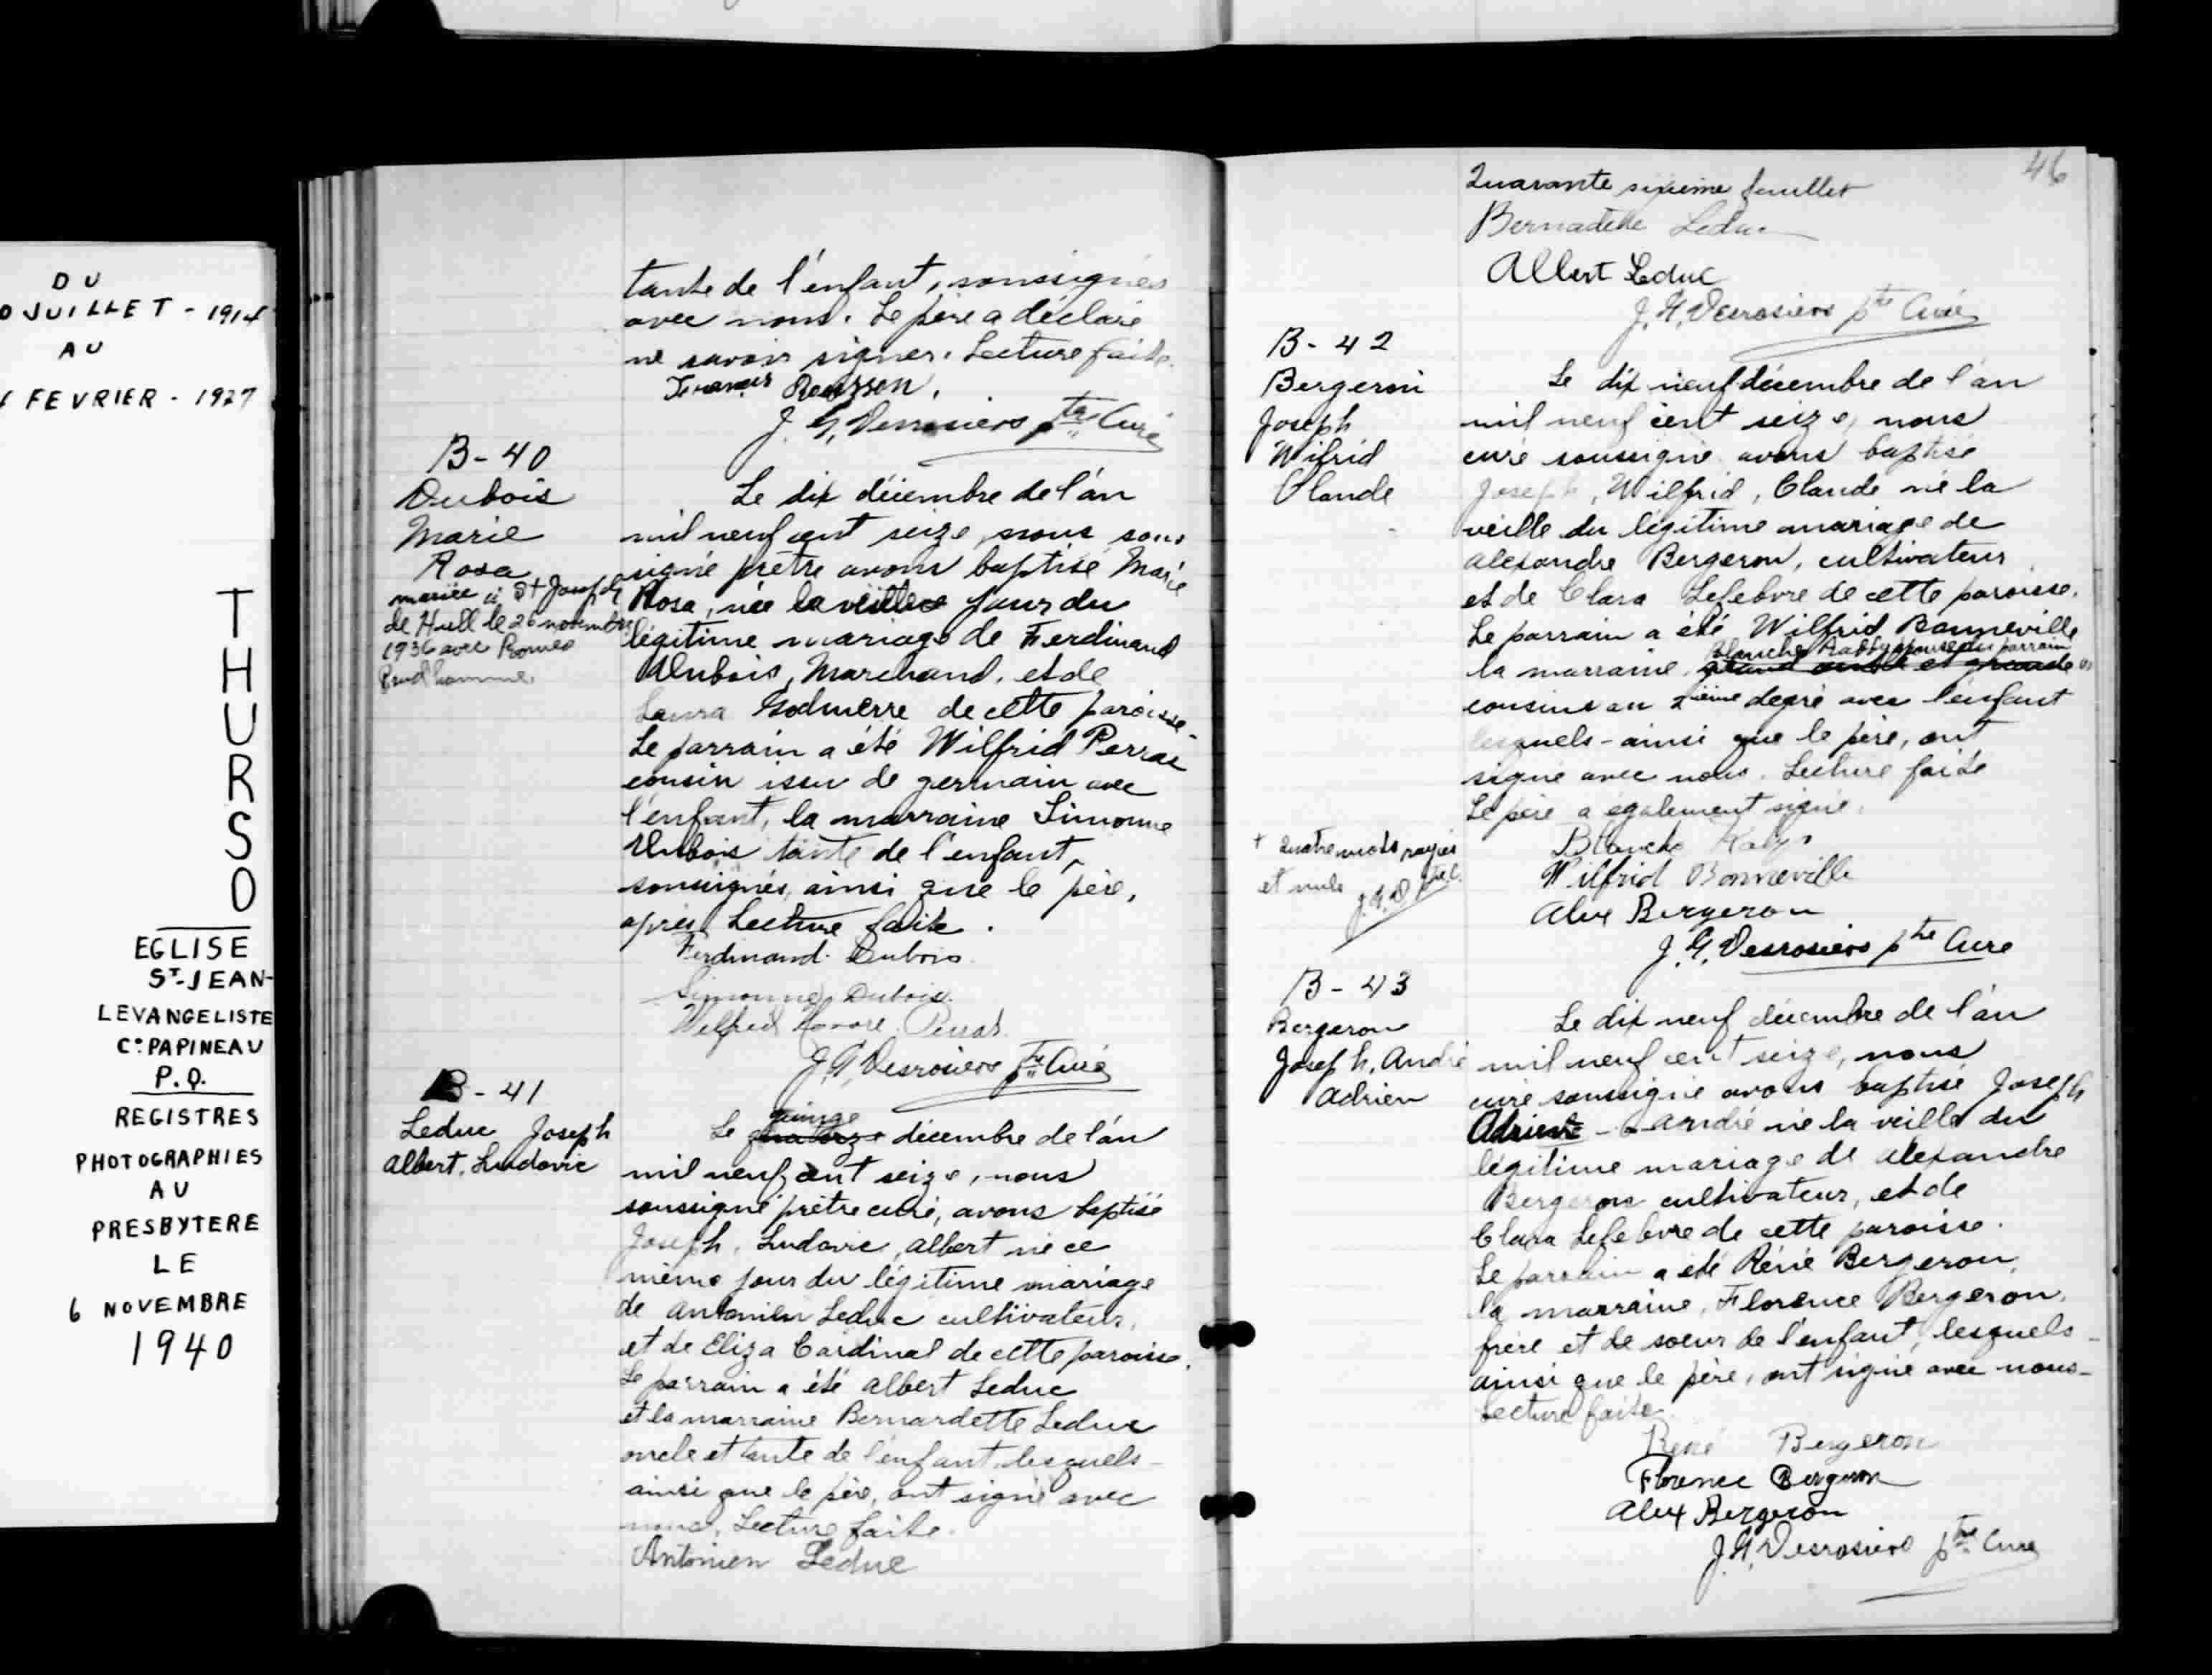 DU
0 JUILLET - 1914
AU
FEVRIER - 1927
THURSO
EGLISE
ST-JEAN-
LEVANGELISTE
Cº PAPINEAU
P.Q.
REGISTRES
PHOTOGRAPHIES
AU
PRESBYTERE
LE
6 NOVEMBRE
1940
tante de l'enfant, soussignés
avec nous. Le père a déclaré
ne savoir signer. Lecture faite.
J. G. Desrosiers ptre Curé
B-40
Dubois
Marie
Rosa
mariée à St Joseph
de Hull le 26 novembre
1936 avec Romeo
Prudhomme.
Le dix décembre de l'an
mil neuf cent seize, nous sous
signé prêtre avons baptisé Marie
Rosa, née la veille jour du
légitime mariage de Ferdinand
Dubois, Marchand, et de
Laura Godmerre de cette paroisse.
Le parrain a été Wilfrid Perras
cousin issu de germain avec
l'enfant, la marraine Simonne
Dubois tante de l'enfant,
soussignés, ainsi que le père,
après Lecture faite.
Ferdinand Dubois
Simonne Dubois
Wilfrid Perras
J. G. Desrosiers ptre Curé
B-41
Leduc Joseph
Albert, Ludovic
quinze
Le quatorze décembre de l'an
mil neuf cent seize, nous
soussigné prêtre curé, avons baptisé
Joseph, Ludovic, Albert né ce
même jour du légitime mariage
de Antonien Leduc cultivateur,
et de Eliza Cardinal de cette paroisse.
Le parrain a été Albert Leduc
et la marraine Bernardette Leduc
oncle et tante de l'enfant lesquels
ainsi que le père, ont signé avec
nous. Lecture faite.
Antonien Leduc
46
Quarante sixième feuillet
Bernadette Leduc
Albert Leduc
J. G. Desrosiers ptre Curé
B-42
Bergeron
Joseph
Wilfrid
Claude
Le dix neuf décembre de l'an
mil neuf cent seize, nous
curé soussigné avons baptisé
Joseph, Wilfrid, Claude né la
veille du légitime mariage de
Alexandre Bergeron, cultivateur
et de Clara Lefebvre de cette paroisse.
Le parrain a été Wilfrid Bonneville
Blanche épouse du parrain
la marraine, grand oncle et grande
cousins au 2ième degré avec l'enfant
lesquels - ainsi que le père, ont
signé avec nous. Lecture faite
Le père a également signé.
+ quatre mots rayés
et nuls J.G.D ptre.c.
Blanche
Wilfrid Bonneville
Alex Bergeron
J. G. Desrosiers ptre Curé
B-43
Bergeron
Joseph, André
Adrien
Le dix neuf décembre de l'an
mil neuf cent seize, nous
curé soussigné avons baptisé Joseph
Adrien - André né la veille du
légitime mariage de Alexandre
Bergeron cultivateur, et de
Clara Lefebvre de cette paroisse.
Le parrain a été Réné Bergeron,
la marraine, Florence Bergeron,
frère et de soeur de l'enfant, lesquels
ainsi que le père, ont signé avec nous
Lecture faite.
René Bergeron
Florence Bergeron
Alex Bergeron
J. G. Desrosiers ptre Curé